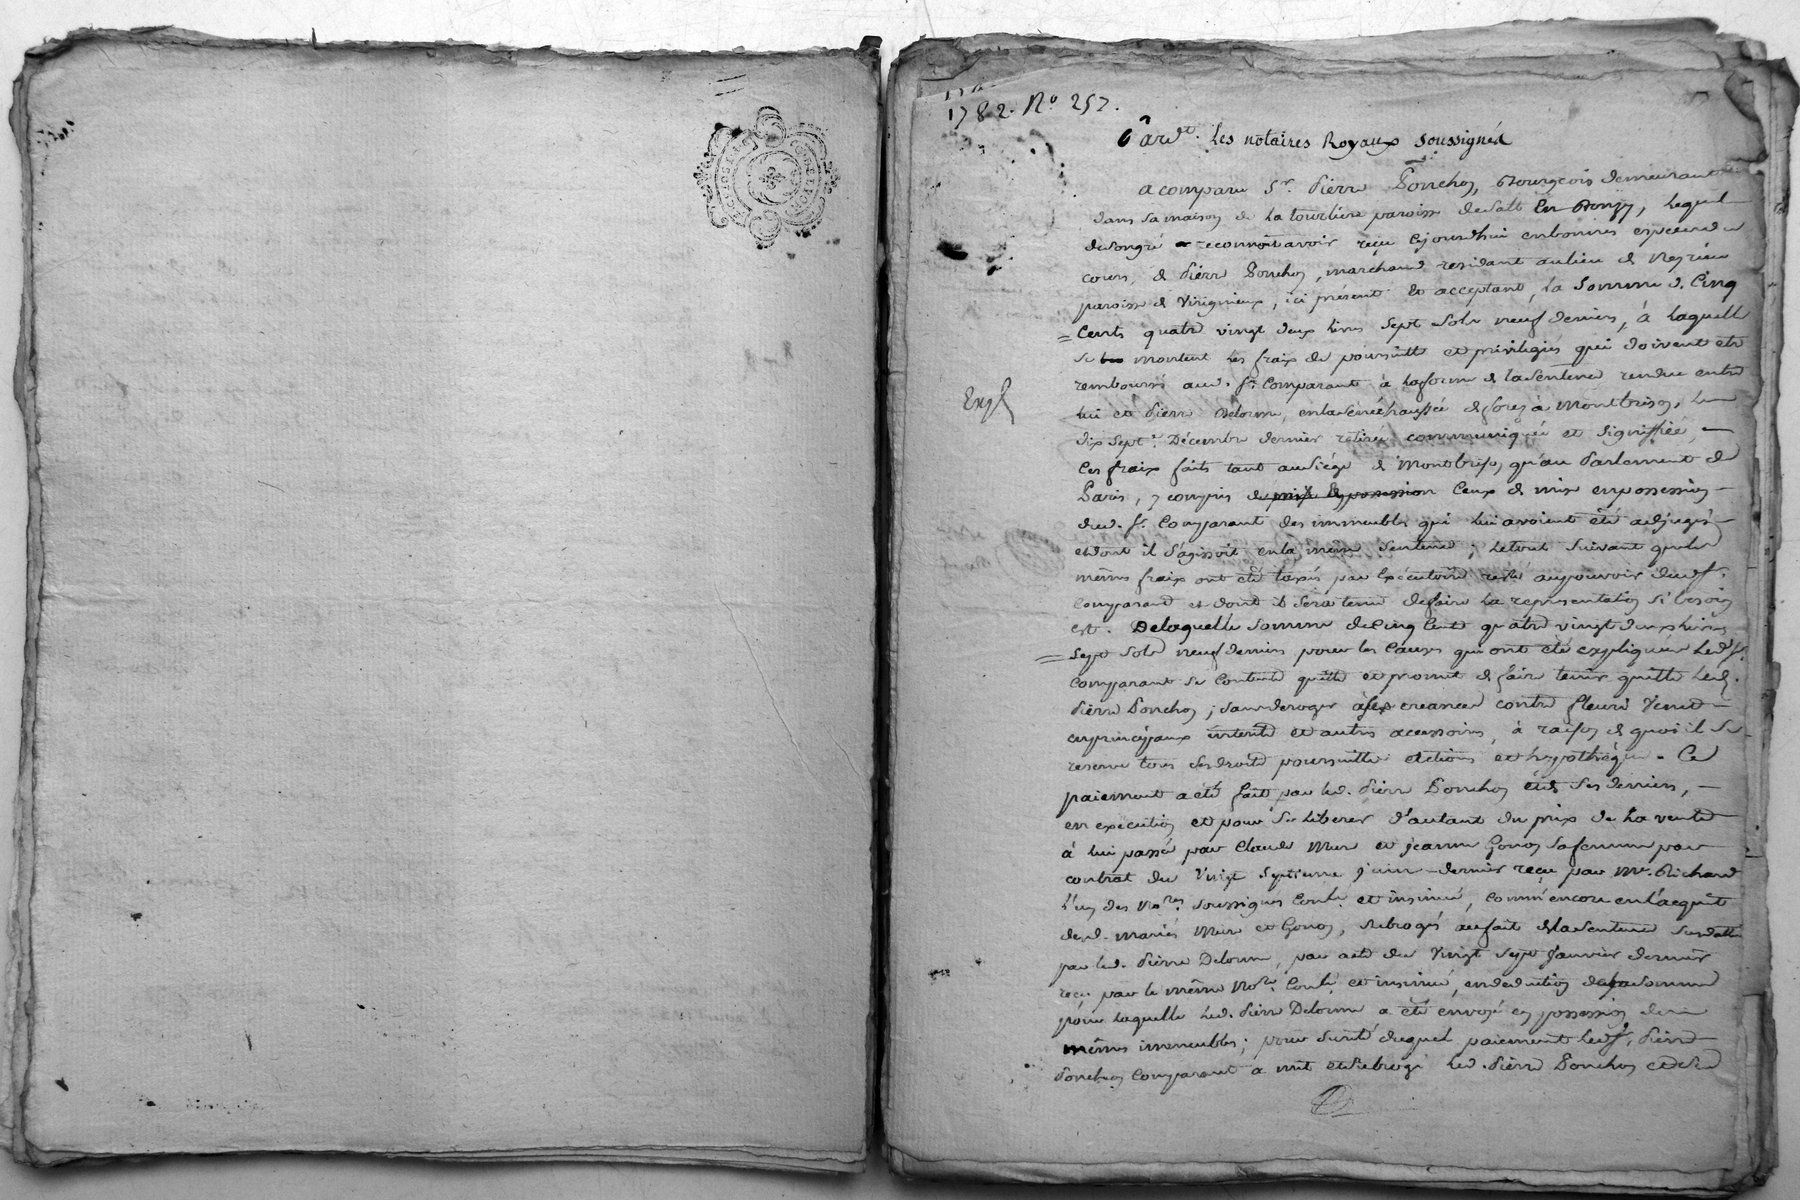 1782. No 257.
Pardt. Les notaires Royaux soussignés
a comparu Sr. Pierre Ponchon, Bourgeois demeurant
dans sa maison de la tourlière paroisse de Salt En Donzy, Lequel
de son gré reconnoit avoir reçu cejourdhui en bonnes espèces de
cours, de Pierre Ponchon, marchand residant au lieu de
paroisse de Virigneux, ici présent et acceptant, La Somme de Cinq
Cents quatre vingt deux livres Sept Sols neuf deniers, à laquelle
se montent les fraix de poursuitte et privilegiés qui doivent etre
remboursés aud. Sr. Comparant à la forme de la Sentence rendue entre
lui et Pierre Delorme, en la Sénéchaussée de forez à Montbrison, Le
dix sept Décembre dernier retirée communiquée et signiffiée,
Les fraix faits tant au Siège de Montbrison, qu'au Parlement de
Paris, y compris de prise de possession Ceux de mise en possession
dud. Sr. Comparant des immeubles qui lui avoient été adjugés
et dont il s'agissoit en la meme Sentence; Le tout Suivant que les
mêmes fraix ont été taxés par Exécutoire resté au pouvoir dud. Sr.
Comparant et dont il sera tenu de faire la representation si besoin
est. De laquelle Somme de Cinq Cents quatre vingt deux livres
Sept Sols neuf deniers pour les Causes qui ont été expliquées Led. Sr.
Comparant se contente quitte et promet de faire tenir quitte Led.
Pierre Ponchon; sans deroger à ses creances contre fleuri
en principaux interets et autres accessoires, à raison de quoi il se
reserve tous ses droits poursuittes actions et hypothèques. Ce
paiement a été fait par led. Pierre Ponchon et de ses deniers,
en execution et pour se liberer d'autant du prix de la vente
à lui passée par Claude Mure et jeanne Gonon sa femme par
contrat du Vingt Septieme juin dernier reçu par Me. Richard
L'un des Nores. soussignés Conlé. et insinué, comm'encore en l'acquit
desd. mariés Mure et Gonon, subrogés au fait de la Sentence Susdatte
par led. Pierre Delorme, par acte du Vingt Sept Janvier dernier
reçu par le même Nore. Conlé. et insinué, en deduction de la somme
pour laquelle Led. Pierre Delorme a été envoyé en possession des
mêmes immeubles; pour sureté duquel paiement Led. Sr. Pierre
Ponchon Comparant a mis et subrogé Led. Pierre Ponchon